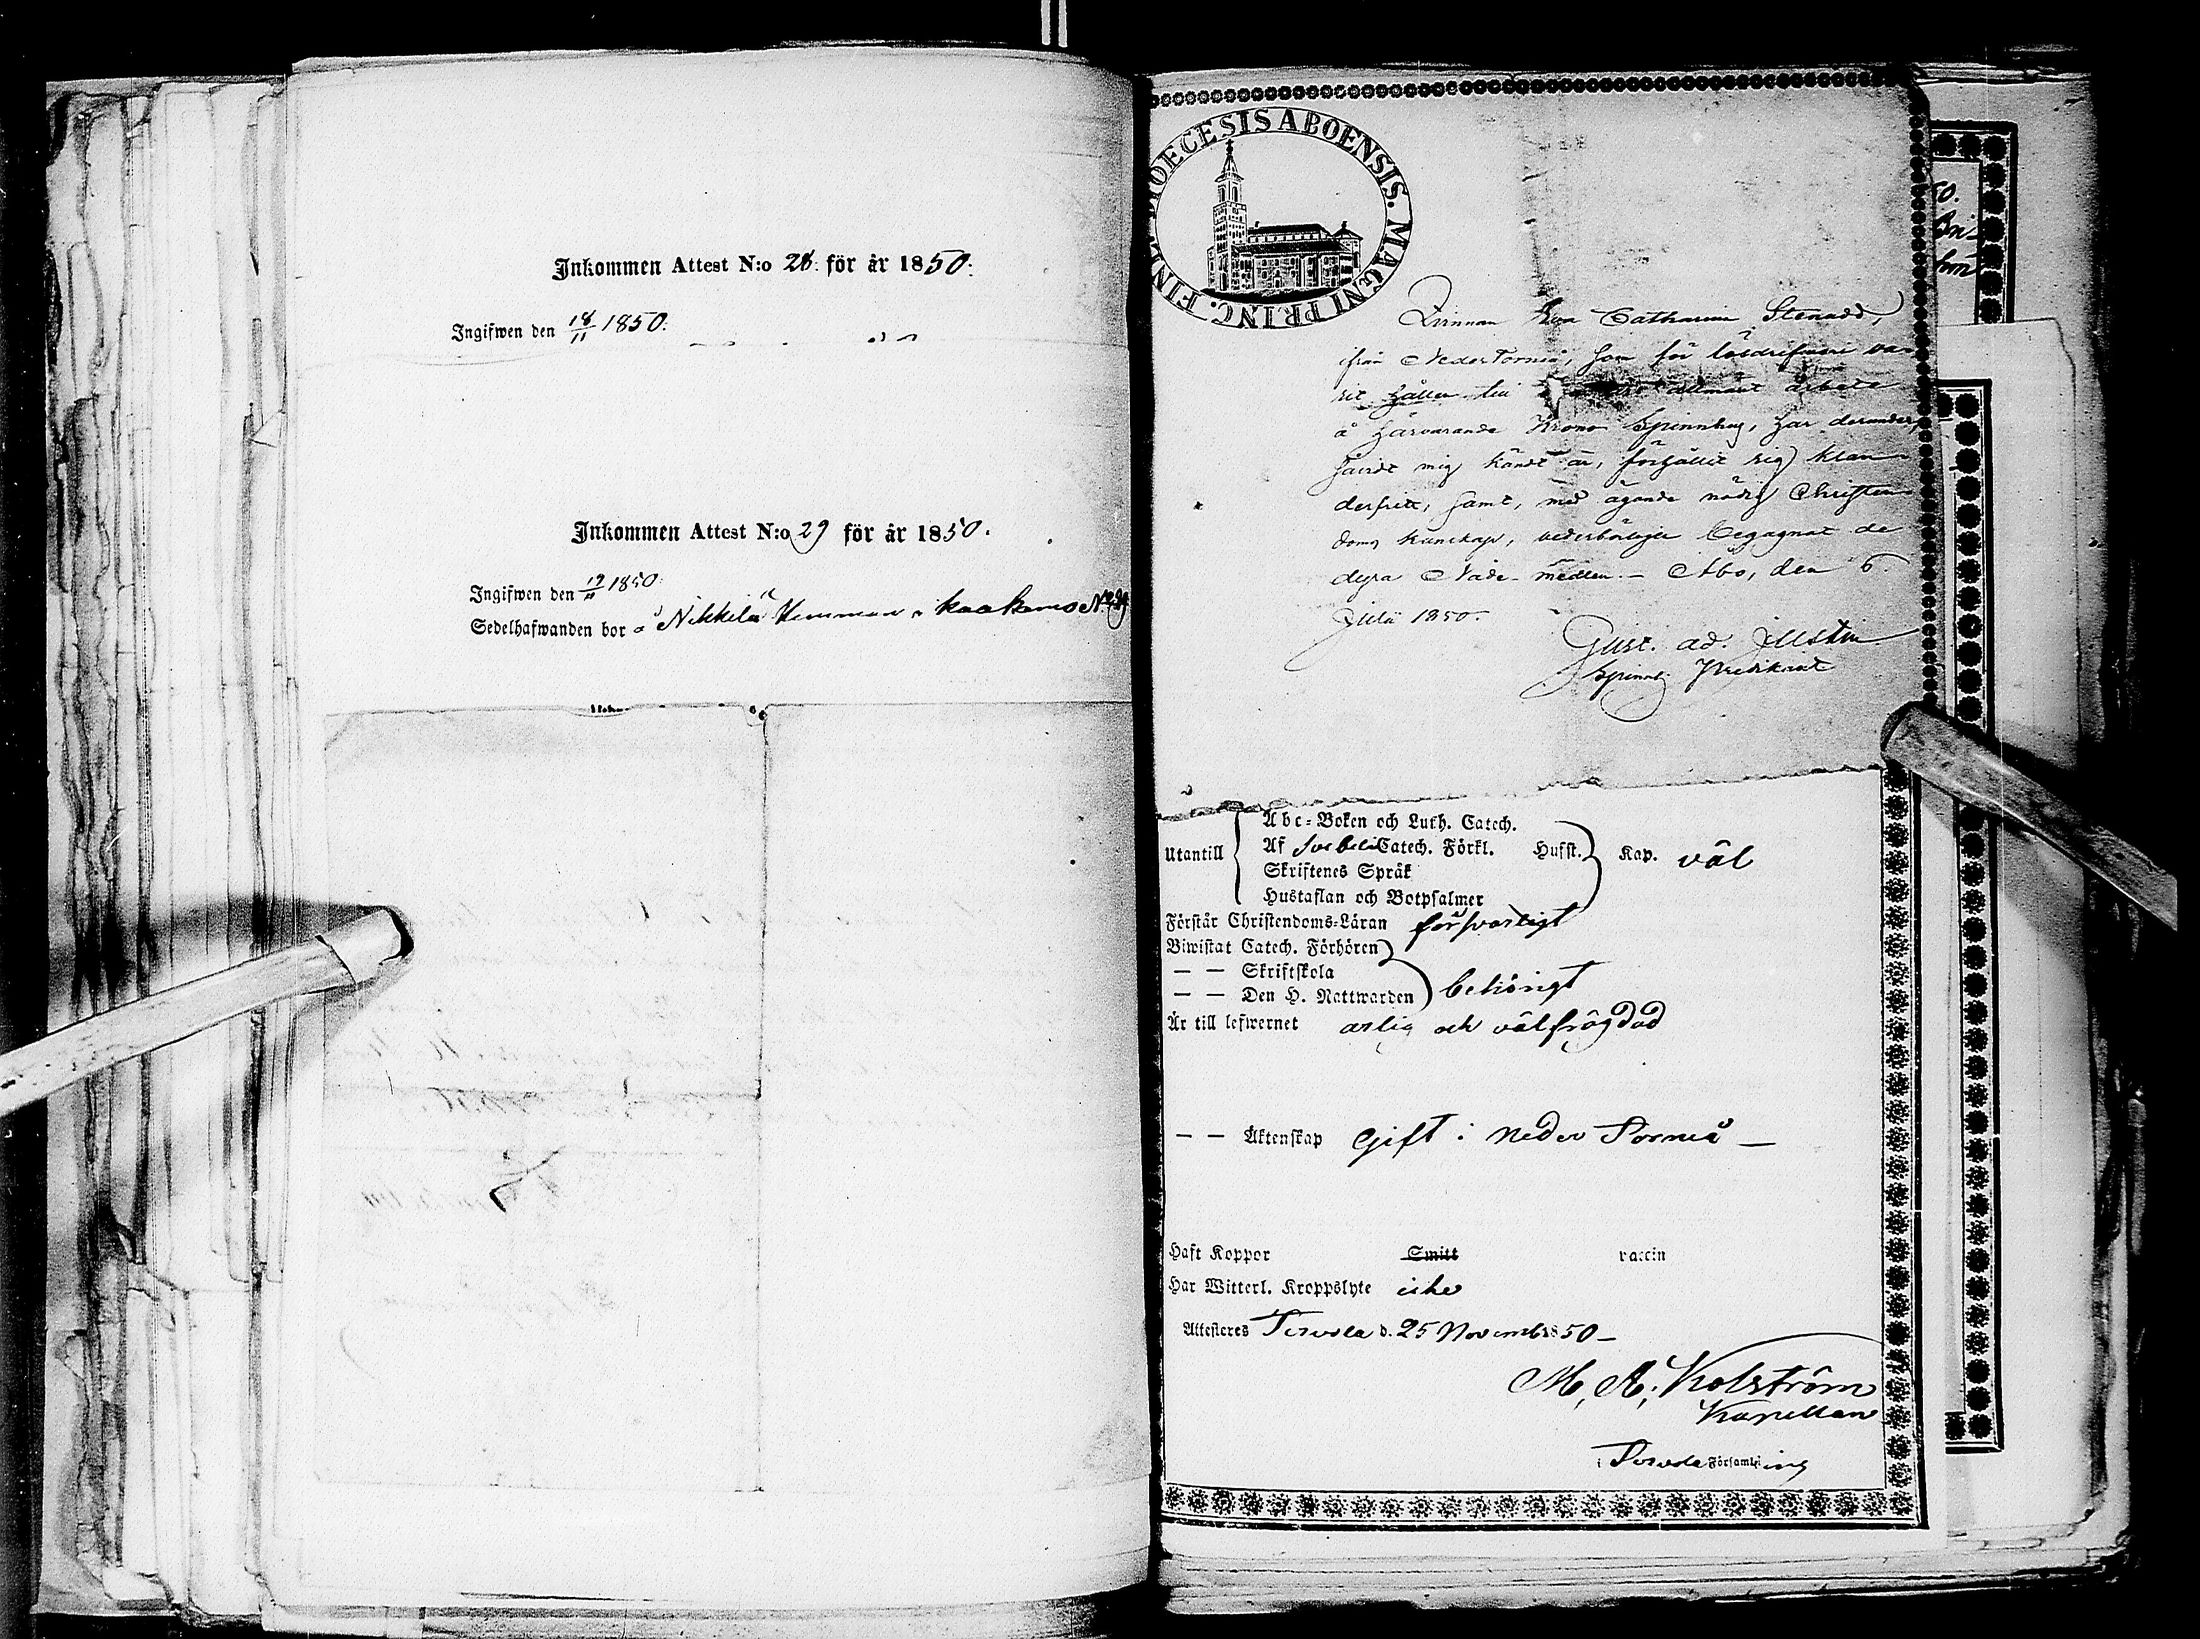 Inkommen Attest N:o 28. för år 1850.
Ingifwen den 18/11 1850.
Inkommen Attest N:o 29 för år 1850.
Ingifwen den 19/11 1850.
Sedelhafwanden bor å Nikkilä Hemman i Kaakamo
DIOECESIS ABOENSIS. MAGNI PRINC. FINL.
Qvinnan Eva Catharina Stenudd,
ifrån Neder Torneå, som för lösdrifveri va-
rit hållen till allmänt arbete
å härvarande Krono Spinnhus, har derunder,
såvidt mig kändt är, förhållit sig klan-
derfritt, samt, med ägande nödig Christen-
doms kunskap, vederbörligen begagnat de
dyra Nåde-medlen. – Åbo, den 6
Julii 1850.
Gust. Ad.
Spinnh. Predikant
Utantill
Abc-Boken och Luth. Catech.
Af Svebelii Catech. Förkl. Hufst. Kap. väl
Skriftenes Språk
Hustaflan och Botpsalmer
Förstår Christendoms-Läran försvarligt
Biwistat Catech. Förhören
— — Skriftskola
— — Den H. Nattwarden behörigt
Är till lefwernet ärlig och välfrägdad
— — Äktenskap Gift i Neder Torneå —
Haft Koppor Smitt vaccin
Har Witterl. Kroppslyte icke
Attesteres Tervola d. 25 Novemb 1850 –
M. A. Kolström
Kapellan
i Tervola Församling
50.